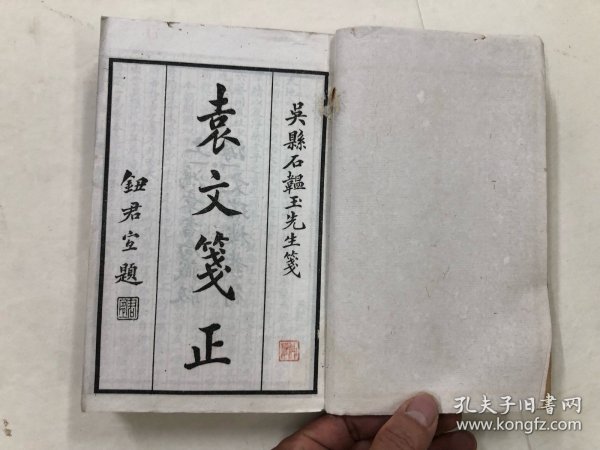 吳縣石韞玉先生箋
袁文箋正
鈕君宜題
孔夫子旧書网
kongfz.com